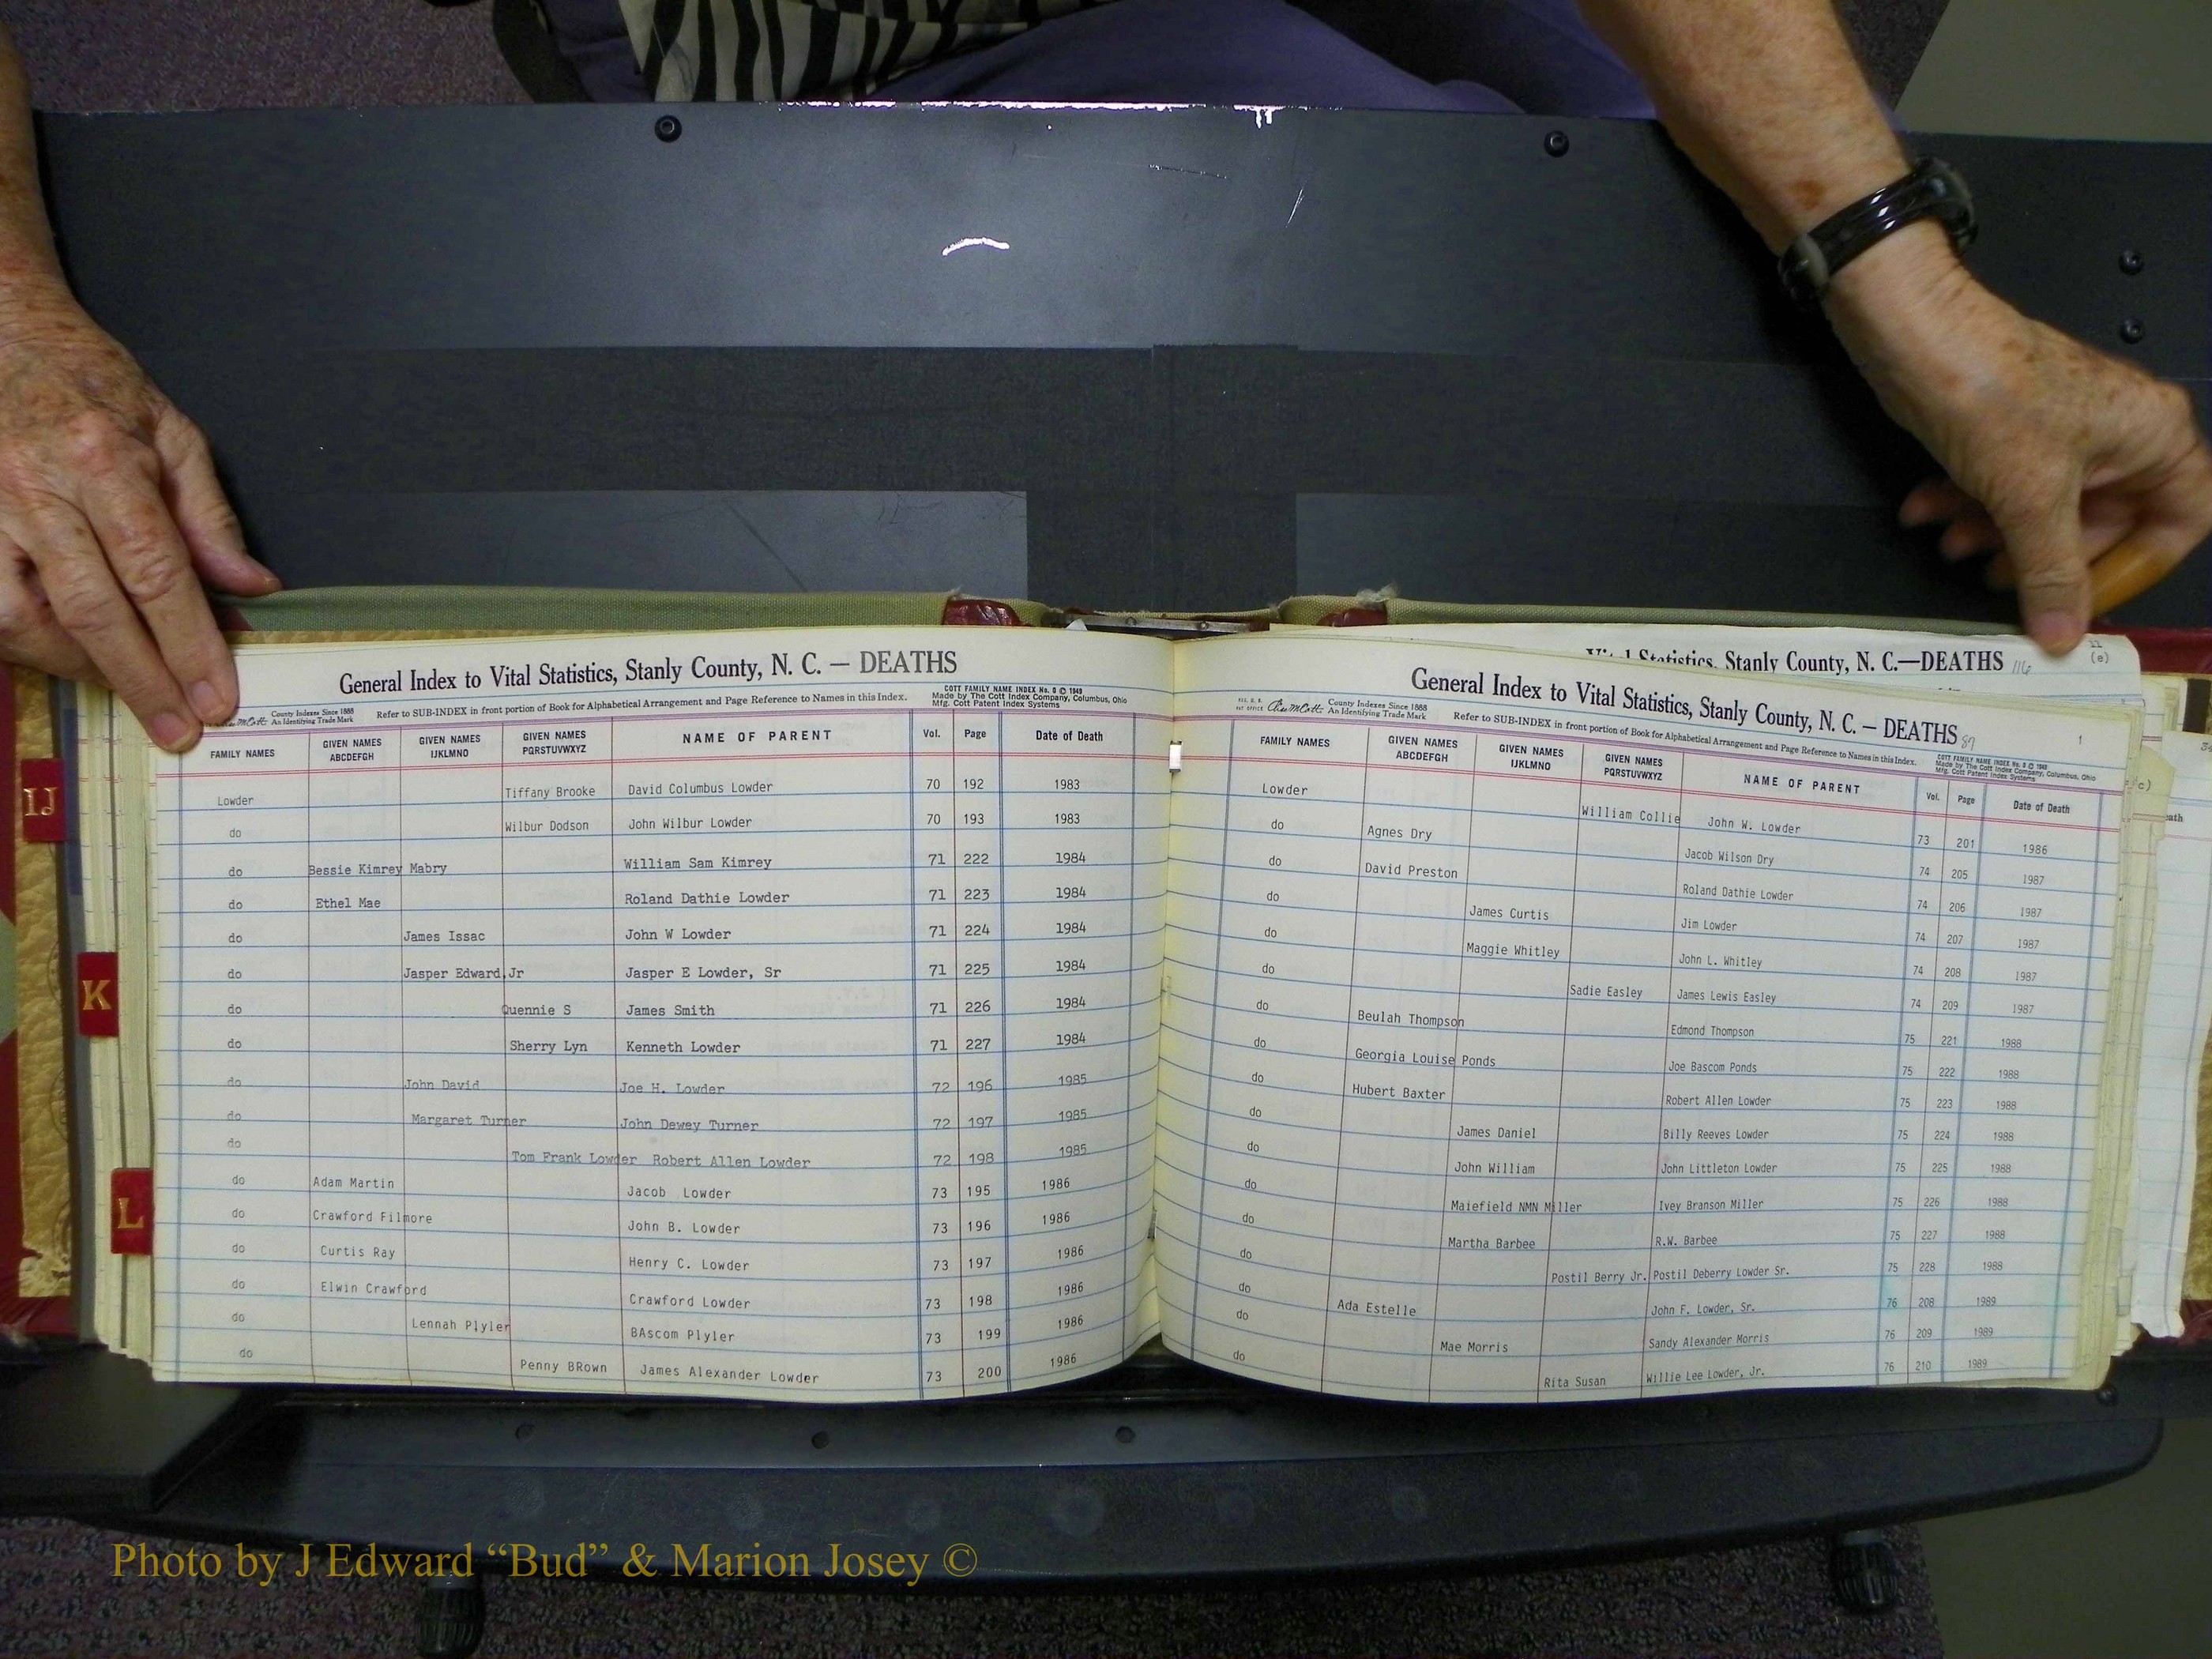 General Index to Vital Statistics, Stanly County, N. C. — DEATHS
County Indexes Since 1888
An Identifying Trade Mark
Refer to SUB-INDEX in front portion of Book for Alphabetical Arrangement and Page Reference to Names in this Index.
COTT FAMILY NAME INDEX No. 0 © 1949
Made by The Cott Index Company, Columbus, Ohio
Mfg. Cott Patent Index Systems
FAMILY NAMES GIVEN NAMES ABCDEFGH GIVEN NAMES IJKLMNO GIVEN NAMES PQRSTUVWXYZ NAME OF PARENT Vol. Page Date of Death
Lowder Tiffany Brooke David Columbus Lowder 70 192 1983
do Wilbur Dodson John Wilbur Lowder 70 193 1983
do Bessie Kimrey Mabry William Sam Kimrey 71 222 1984
do Ethel Mae Roland Dathie Lowder 71 223 1984
do James Issac John W Lowder 71 224 1984
do Jasper Edward,Jr Jasper E Lowder, Sr 71 225 1984
do Quennie S James Smith 71 226 1984
do Sherry Lyn Kenneth Lowder 71 227 1984
do John David Joe H. Lowder 72 196 1985
do Margaret Turner John Dewey Turner 72 197 1985
do Tom Frank Lowder Robert Allen Lowder 72 198 1985
do Adam Martin Jacob Lowder 73 195 1986
do Crawford Filmore John B. Lowder 73 196 1986
do Curtis Ray Henry C. Lowder 73 197 1986
do Elwin Crawford Crawford Lowder 73 198 1986
do Lennah Plyler BAscom Plyler 73 199 1986
do Penny BRown James Alexander Lowder 73 200 1986
IJ
K
L
Vital Statistics, Stanly County, N. C.—DEATHS 116
(e)
General Index to Vital Statistics, Stanly County, N. C. — DEATHS 87
1
County Indexes Since 1888
An Identifying Trade Mark
Refer to SUB-INDEX in front portion of Book for Alphabetical Arrangement and Page Reference to Names in this Index.
COTT FAMILY NAME INDEX No. 0 © 1949
Made by The Cott Index Company, Columbus, Ohio
Mfg. Cott Patent Index Systems
FAMILY NAMES GIVEN NAMES ABCDEFGH GIVEN NAMES IJKLMNO GIVEN NAMES PQRSTUVWXYZ NAME OF PARENT Vol. Page Date of Death
Lowder William Collie John W. Lowder 73 201 1986
do Agnes Dry Jacob Wilson Dry 74 205 1987
do David Preston Roland Dathie Lowder 74 206 1987
do James Curtis Jim Lowder 74 207 1987
do Maggie Whitley John L. Whitley 74 208 1987
do Sadie Easley James Lewis Easley 74 209 1987
do Beulah Thompson Edmond Thompson 75 221 1988
do Georgia Louise Ponds Joe Bascom Ponds 75 222 1988
do Hubert Baxter Robert Allen Lowder 75 223 1988
do James Daniel Billy Reeves Lowder 75 224 1988
do John William John Littleton Lowder 75 225 1988
do Maiefield NMN Miller Ivey Branson Miller 75 226 1988
do Martha Barbee R.W. Barbee 75 227 1988
do Postil Berry Jr. Postil Deberry Lowder Sr. 75 228 1988
do Ada Estelle John F. Lowder, Sr. 76 208 1989
do Mae Morris Sandy Alexander Morris 76 209 1989
do Rita Susan Willie Lee Lowder, Jr. 76 210 1989
Photo by J Edward “Bud” & Marion Josey ©